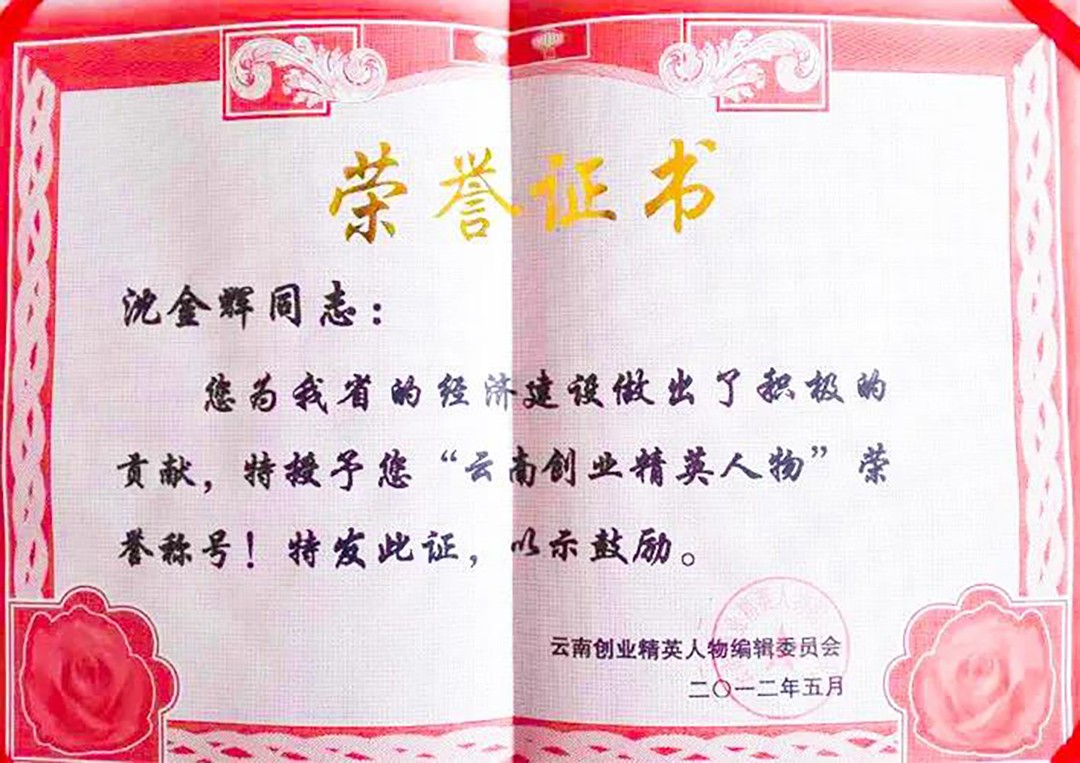 荣誉证书
沈金辉同志：
您为我省的经济建设做出了积极的
贡献，特授予您“云南创业精英人物”荣
誉称号！特发此证，以示鼓励。
云南创业精英人物编辑委员会
二〇一二年五月